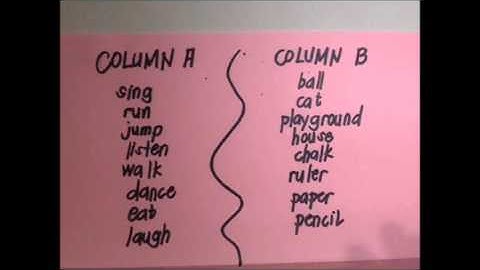 COLUMN A
sing
run
jump
listen
walk
dance
eat
laugh
COLUMN B
ball
cat
playground
house
chalk
ruler
paper
pencil